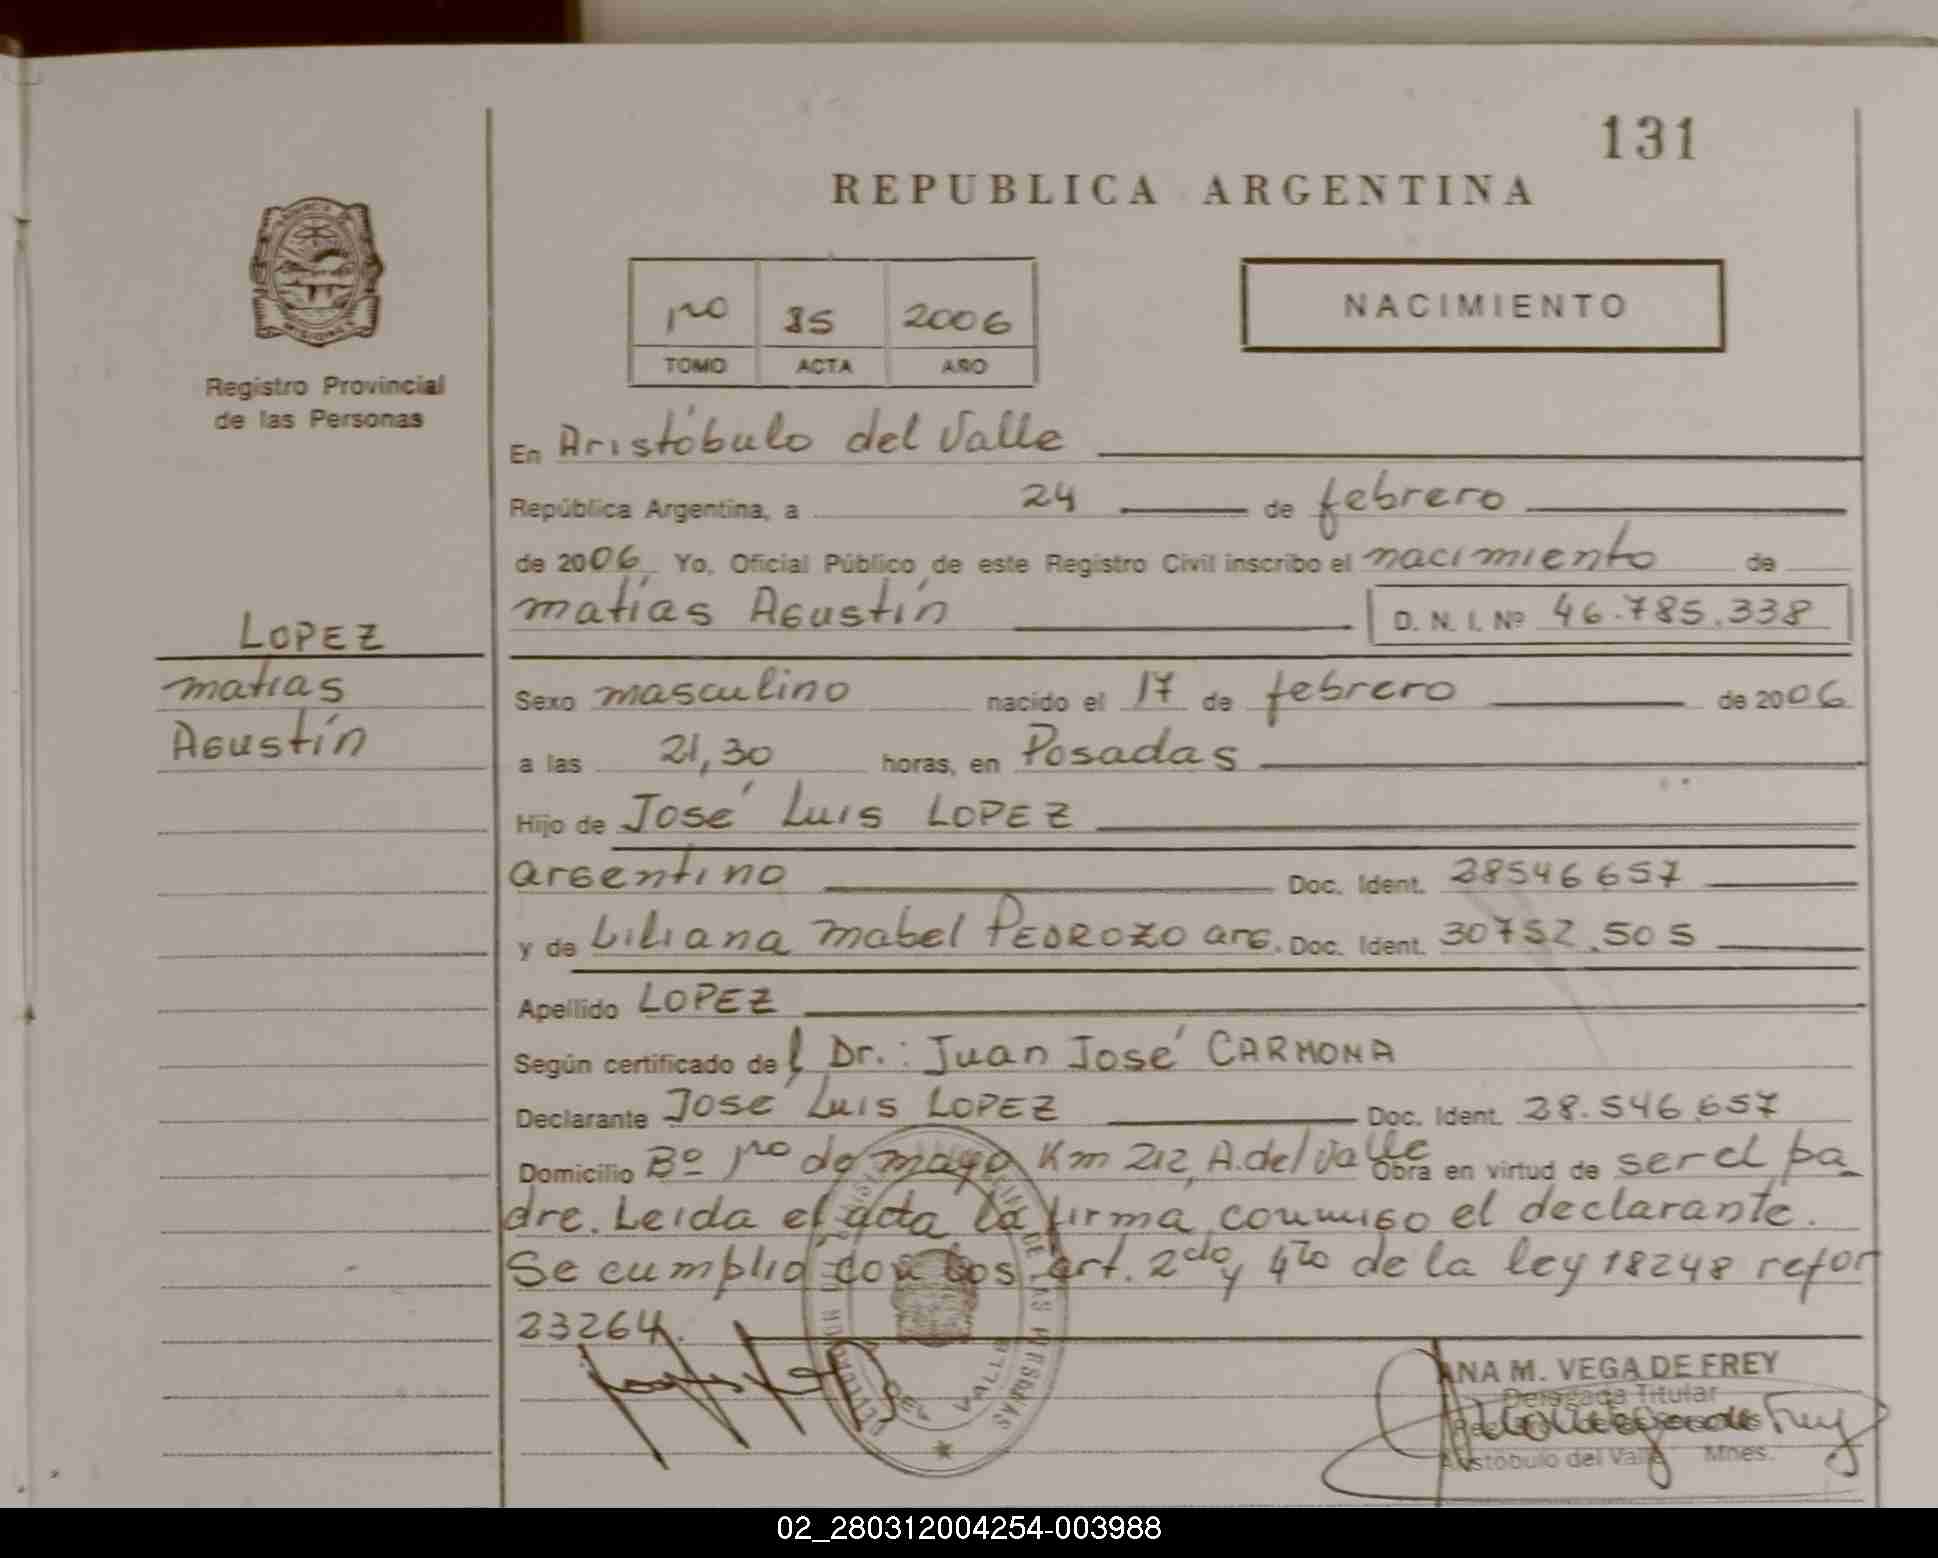 131
REPUBLICA ARGENTINA
Registro Provincial
de las Personas
1ro 85 2006
TOMO ACTA AÑO
NACIMIENTO
En Aristóbulo del Valle
República Argentina, a 24 de febrero
de 2006 Yo, Oficial Público de este Registro Civil inscribo el nacimiento de
matías Agustín D. N. I. Nº 46.785.338
LOPEZ
matias
Agustín
Sexo masculino nacido el 17 de febrero de 2006
a las 21,30 horas, en Posadas
Hijo de José Luis LOPEZ
argentino Doc. Ident. 28546657
y de Liliana mabel PEDROZO arg. Doc. Ident. 30752.505
Apellido LOPEZ
Según certificado del Dr.: Juan José CARMONA
Declarante José Luis LOPEZ Doc. Ident. 28.546.657
Domicilio Bº 1ro de mayo Km 212, A. del Valle Obra en virtud de ser el pa
dre. Leida el acta la firma conmigo el declarante.
Se cumplió con los art. 2do y 4to de la ley 18248 refor
23264.
ANA M. VEGA DE FREY
Delegada Titular
Aristóbulo del Valle Mnes.
02_280312004254-003988